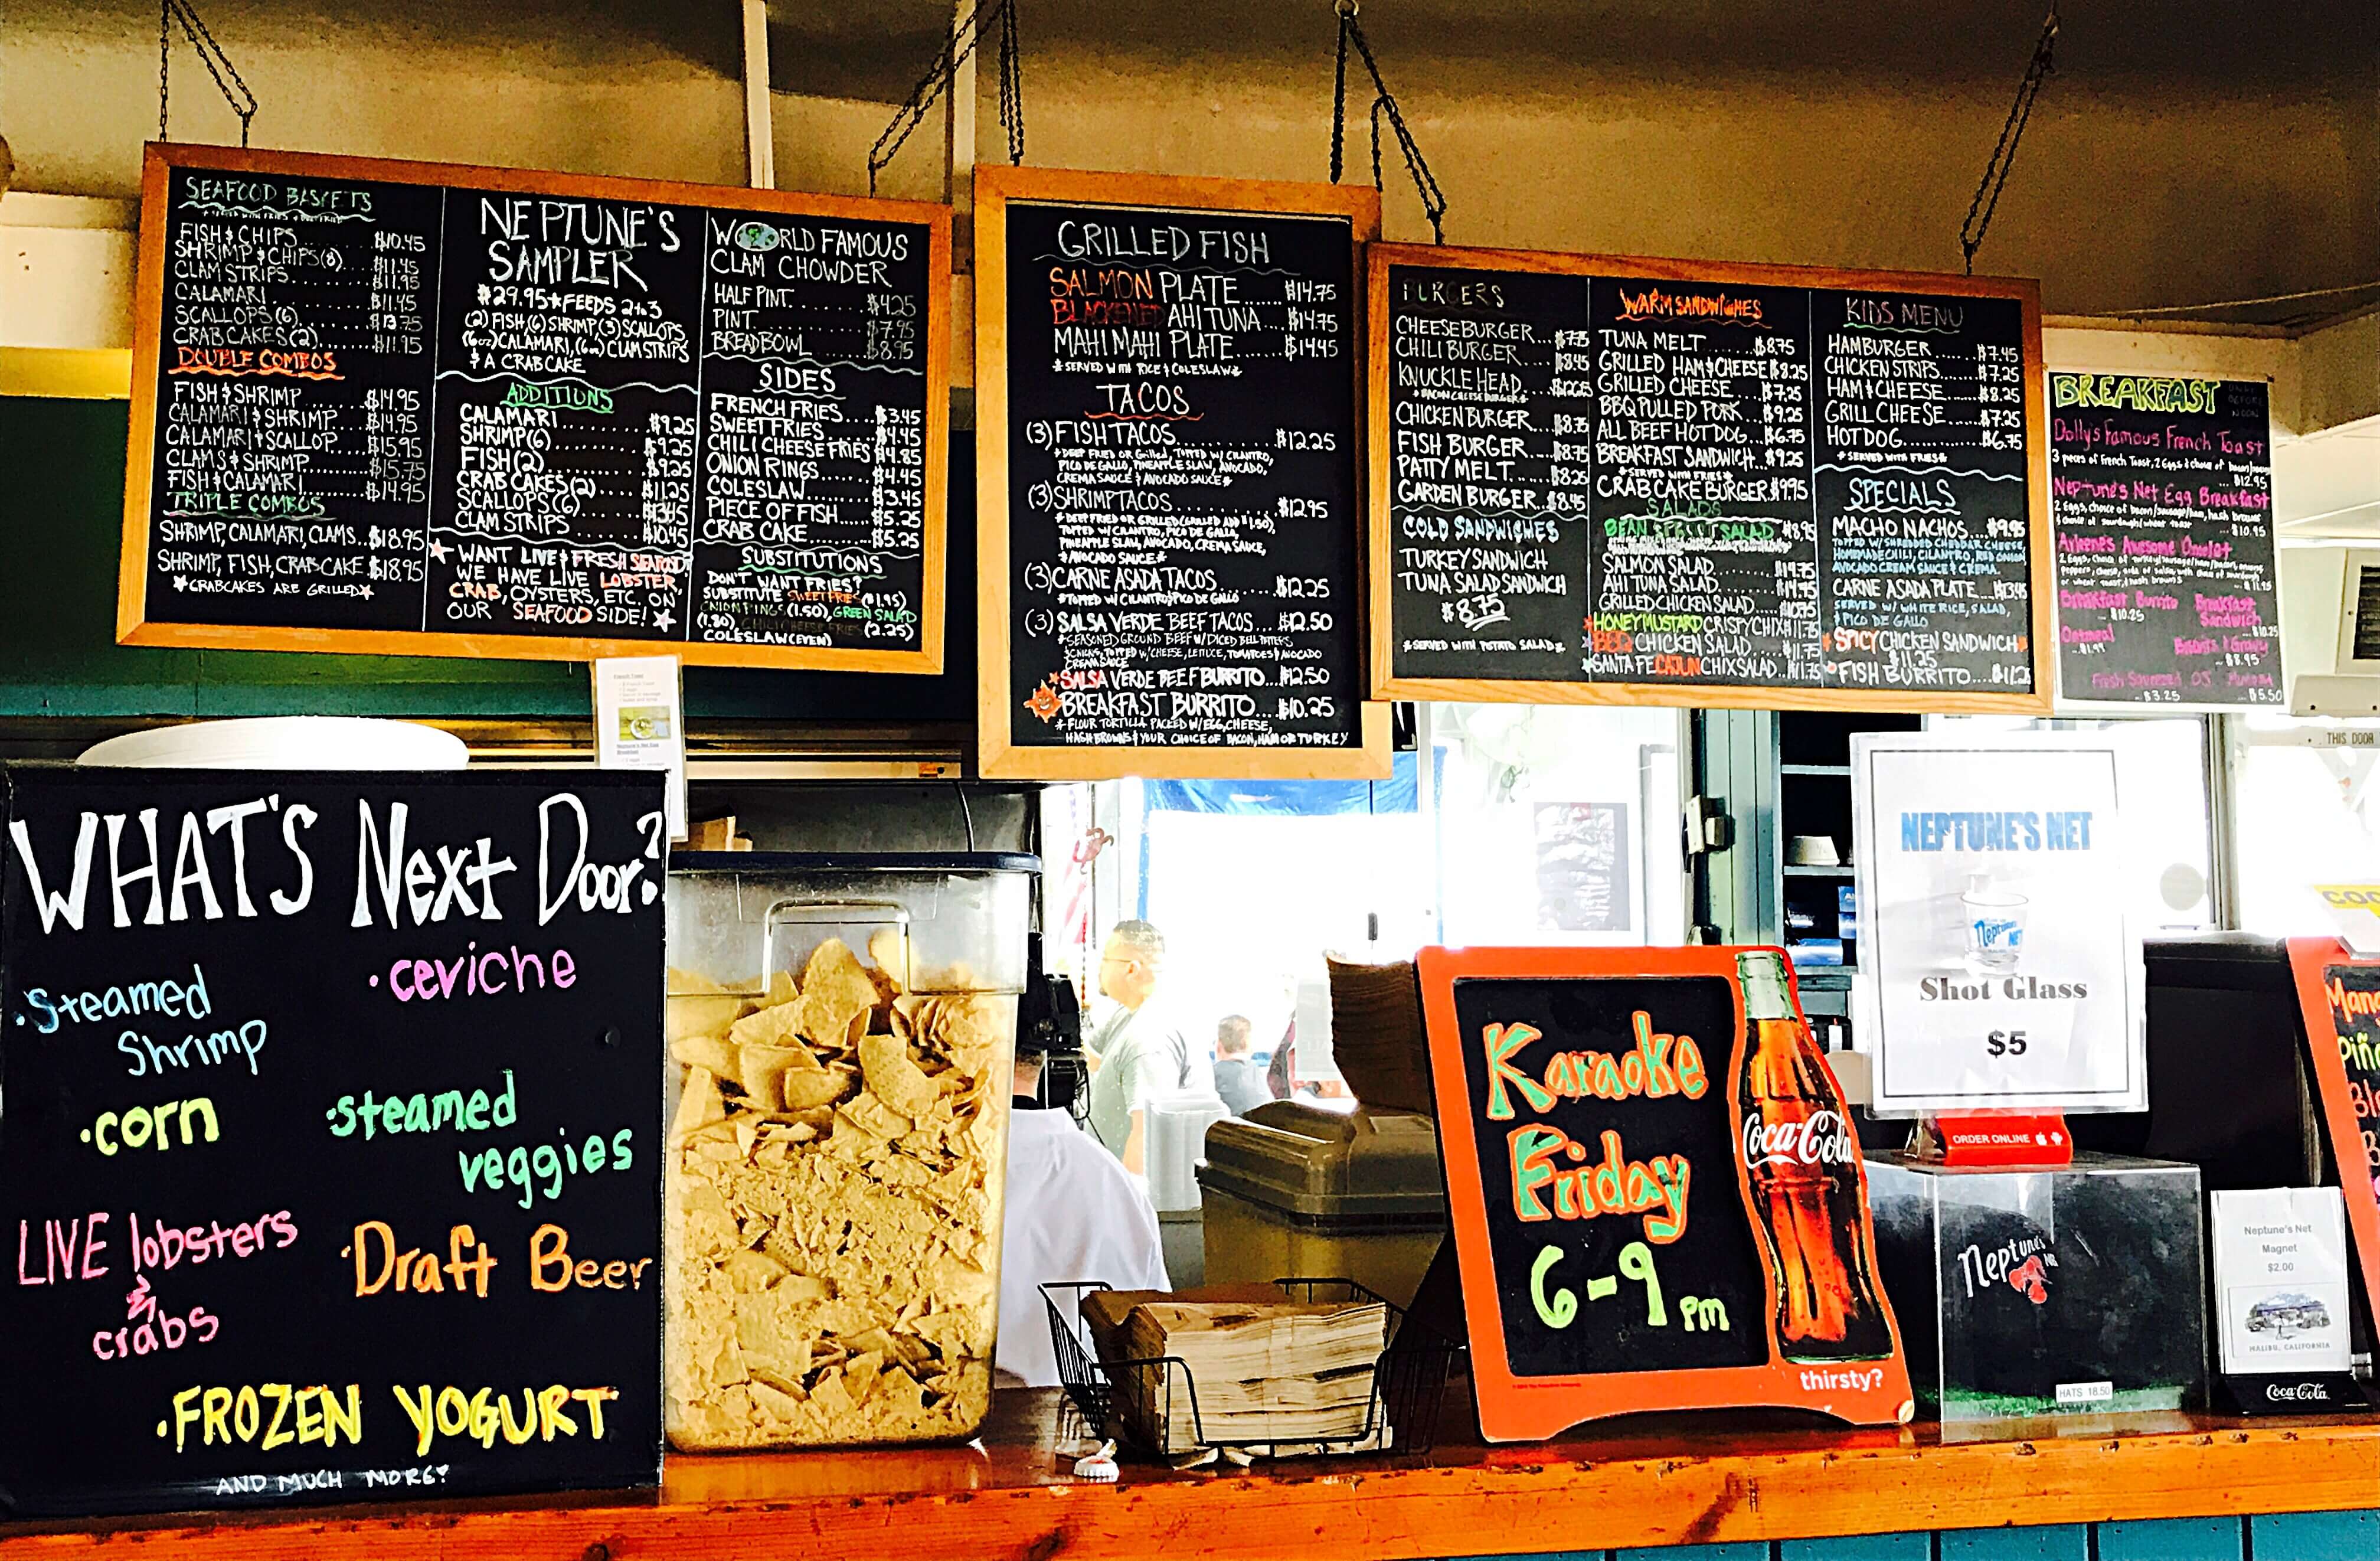 SEAFOOD BASKETS
FISH & CHIPS $10.45
SHRIMP & CHIPS (8) $11.45
CLAM STRIPS $11.95
CALAMARI $11.45
SCALLOPS (6) $13.75
CRAB CAKES (2) $11.95
DOUBLE COMBOS
FISH & SHRIMP $14.95
CALAMARI & SHRIMP $14.95
CALAMARI & SCALLOP $15.95
CLAMS & SHRIMP $15.75
FISH & CALAMARI $14.95
TRIPLE COMBOS
SHRIMP, CALAMARI, CLAMS $18.95
SHRIMP, FISH, CRAB CAKE $18.95
CRABCAKES ARE GRILLED
NEPTUNE'S
SAMPLER
$29.95 FEEDS 2 to 3
(2) FISH, (6) SHRIMP, (3) SCALLOPS,
(6oz) CALAMARI, (6oz) CLAM STRIPS
& A CRAB CAKE
ADDITIONS
CALAMARI $9.25
SHRIMP (6) $9.25
FISH (2) $9.25
CRAB CAKES (2) $11.25
SCALLOPS (6)
CLAM STRIPS $10.45
WANT LIVE & FRESH SEAFOOD?
WE HAVE LIVE LOBSTER
CRAB, OYSTERS, ETC. ON
OUR SEAFOOD SIDE!
WORLD FAMOUS
CLAM CHOWDER
HALF PINT $4.25
PINT $7.95
BREAD BOWL $8.95
SIDES
FRENCH FRIES $3.45
SWEET FRIES $4.45
CHILI CHEESE FRIES $4.85
ONION RINGS $4.45
COLESLAW $3.45
PIECE OF FISH $5.25
CRAB CAKE $5.25
SUBSTITUTIONS
DON'T WANT FRIES?
SUBSTITUTE SWEET FRIES ($1.95)
ONION RINGS (1.50), GREEN SALAD
(1.80) CHILI CHEESE FRIES (2.25)
COLESLAW (EVEN)
GRILLED FISH
SALMON PLATE $14.75
BLACKENED AHI TUNA $14.75
MAHI MAHI PLATE $14.45
SERVED WITH RICE & COLESLAW
TACOS
(3) FISH TACOS $12.25
DEEP FRIED OR Grilled, TOPPED W/ CILANTRO,
PICO DE GALLO, PINEAPPLE SLAW, AVOCADO,
CREMA SAUCE & AVOCADO SAUCE
(3) SHRIMP TACOS $12.95
DEEP FRIED OR GRILLED (GRILLED ADD $1.50)
TOPPED W/ CILANTRO, PICO DE GALLO,
PINEAPPLE SLAW, AVOCADO, CREMA SAUCE,
& AVOCADO SAUCE
(3) CARNE ASADA TACOS $12.25
TOPPED W/ CILANTRO & PICO DE GALLO
(3) SALSA VERDE BEEF TACOS $12.50
SEASONED GROUND BEEF W/ DICED BELL PEPPERS
TOPPED W/ CHEESE, LETTUCE, TOMATOES & AVOCADO
CREAM SAUCE
SALSA VERDE BEEF BURRITO $12.50
BREAKFAST BURRITO $10.25
FLOUR TORTILLA PACKED W/ EGG, CHEESE,
HASH BROWNS & YOUR CHOICE OF BACON, HAM OR TURKEY
BURGERS
CHEESEBURGER
CHILI BURGER $8.45
KNUCKLE HEAD
BACON CHEESE BURGER
CHICKEN BURGER
FISH BURGER $8.75
PATTY MELT $8.25
GARDEN BURGER $8.45
COLD SANDWICHES
TURKEY SANDWICH
TUNA SALAD SANDWICH
$8.75
SERVED WITH POTATO SALAD
WARM SANDWICHES
TUNA MELT $8.75
GRILLED HAM & CHEESE $8.25
GRILLED CHEESE $7.25
BBQ PULLED PORK $9.25
ALL BEEF HOT DOG $6.75
BREAKFAST SANDWICH $9.25
SERVED WITH FRIES
CRAB CAKE BURGER $9.95
SALADS
BEAN SPROUT SALAD $8.95
SALMON SALAD $14.75
AHI TUNA SALAD $14.95
GRILLED CHICKEN SALAD $10.75
HONEY MUSTARD CRISPY CHIX $11.75
BBQ CHICKEN SALAD $11.75
SANTA FE CAJUN CHIX SALAD $11.75
KIDS MENU
HAMBURGER $7.45
CHICKEN STRIPS $7.25
HAM & CHEESE $8.25
GRILL CHEESE $7.25
HOT DOG $6.75
SERVED WITH FRIES
SPECIALS
MACHO NACHOS $9.95
TOPPED W/ SHREDDED CHEDDAR CHEESE,
HOMEMADE CHILI, CILANTRO, RED ONION,
AVOCADO CREAM SAUCE & CREMA.
CARNE ASADA PLATE $13.45
SERVED W/ WHITE RICE, SALAD,
& PICO DE GALLO
SPICY CHICKEN SANDWICH
$11.25
FISH BURRITO
BREAKFAST
Dolly's Famous French Toast
3 pieces of French Toast, 2 Eggs & choice of bacon/
$12.95
Neptune's Net Egg Breakfast
2 Eggs, choice of bacon/sausage/ham, hash browns
& choice of sourdough/wheat toast
$10.95
Arlene's Awesome Omelet
$11.95
Breakfast Burrito
$10.25
Breakfast
Sandwich
$10.25
Oatmeal
$1.99
Biscuits & Gravy
$8.95
Fresh Squeezed OJ
$3.25
$5.50
THIS DOOR
WHAT'S Next Door?
·Steamed
Shrimp
·ceviche
·corn
·steamed
veggies
LIVE lobsters
&
crabs
·Draft Beer
·FROZEN YOGURT
AND MUCH MORE!
Karaoke
Friday
6-9 pm
Coca-Cola
thirsty?
NEPTUNE'S NET
Neptune's
NET
Shot Glass
$5
ORDER ONLINE
Neptune's
HATS 18.50
Neptune's Net
Magnet
$2.00
MALIBU, CALIFORNIA
Coca-Cola